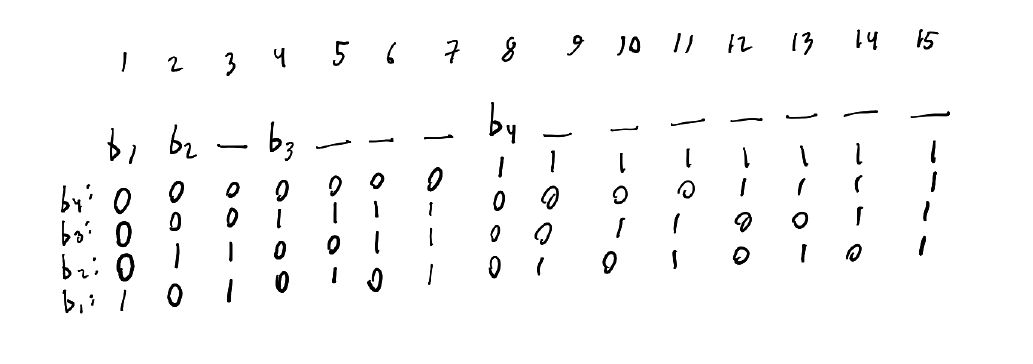 1 2 3 4 5 6 7 8 9 10 11 12 13 14 15
b1 b2 _ b3 _ _ _ b4 _ _ _ _ _ _ _
b4: 0 0 0 0 0 0 0 1 1 1 1 1 1 1 1
b3: 0 0 0 1 1 1 1 0 0 0 0 1 1 1 1
b2: 0 1 1 0 0 1 1 0 0 1 1 0 0 1 1
b1: 1 0 1 0 1 0 1 0 1 0 1 0 1 0 1